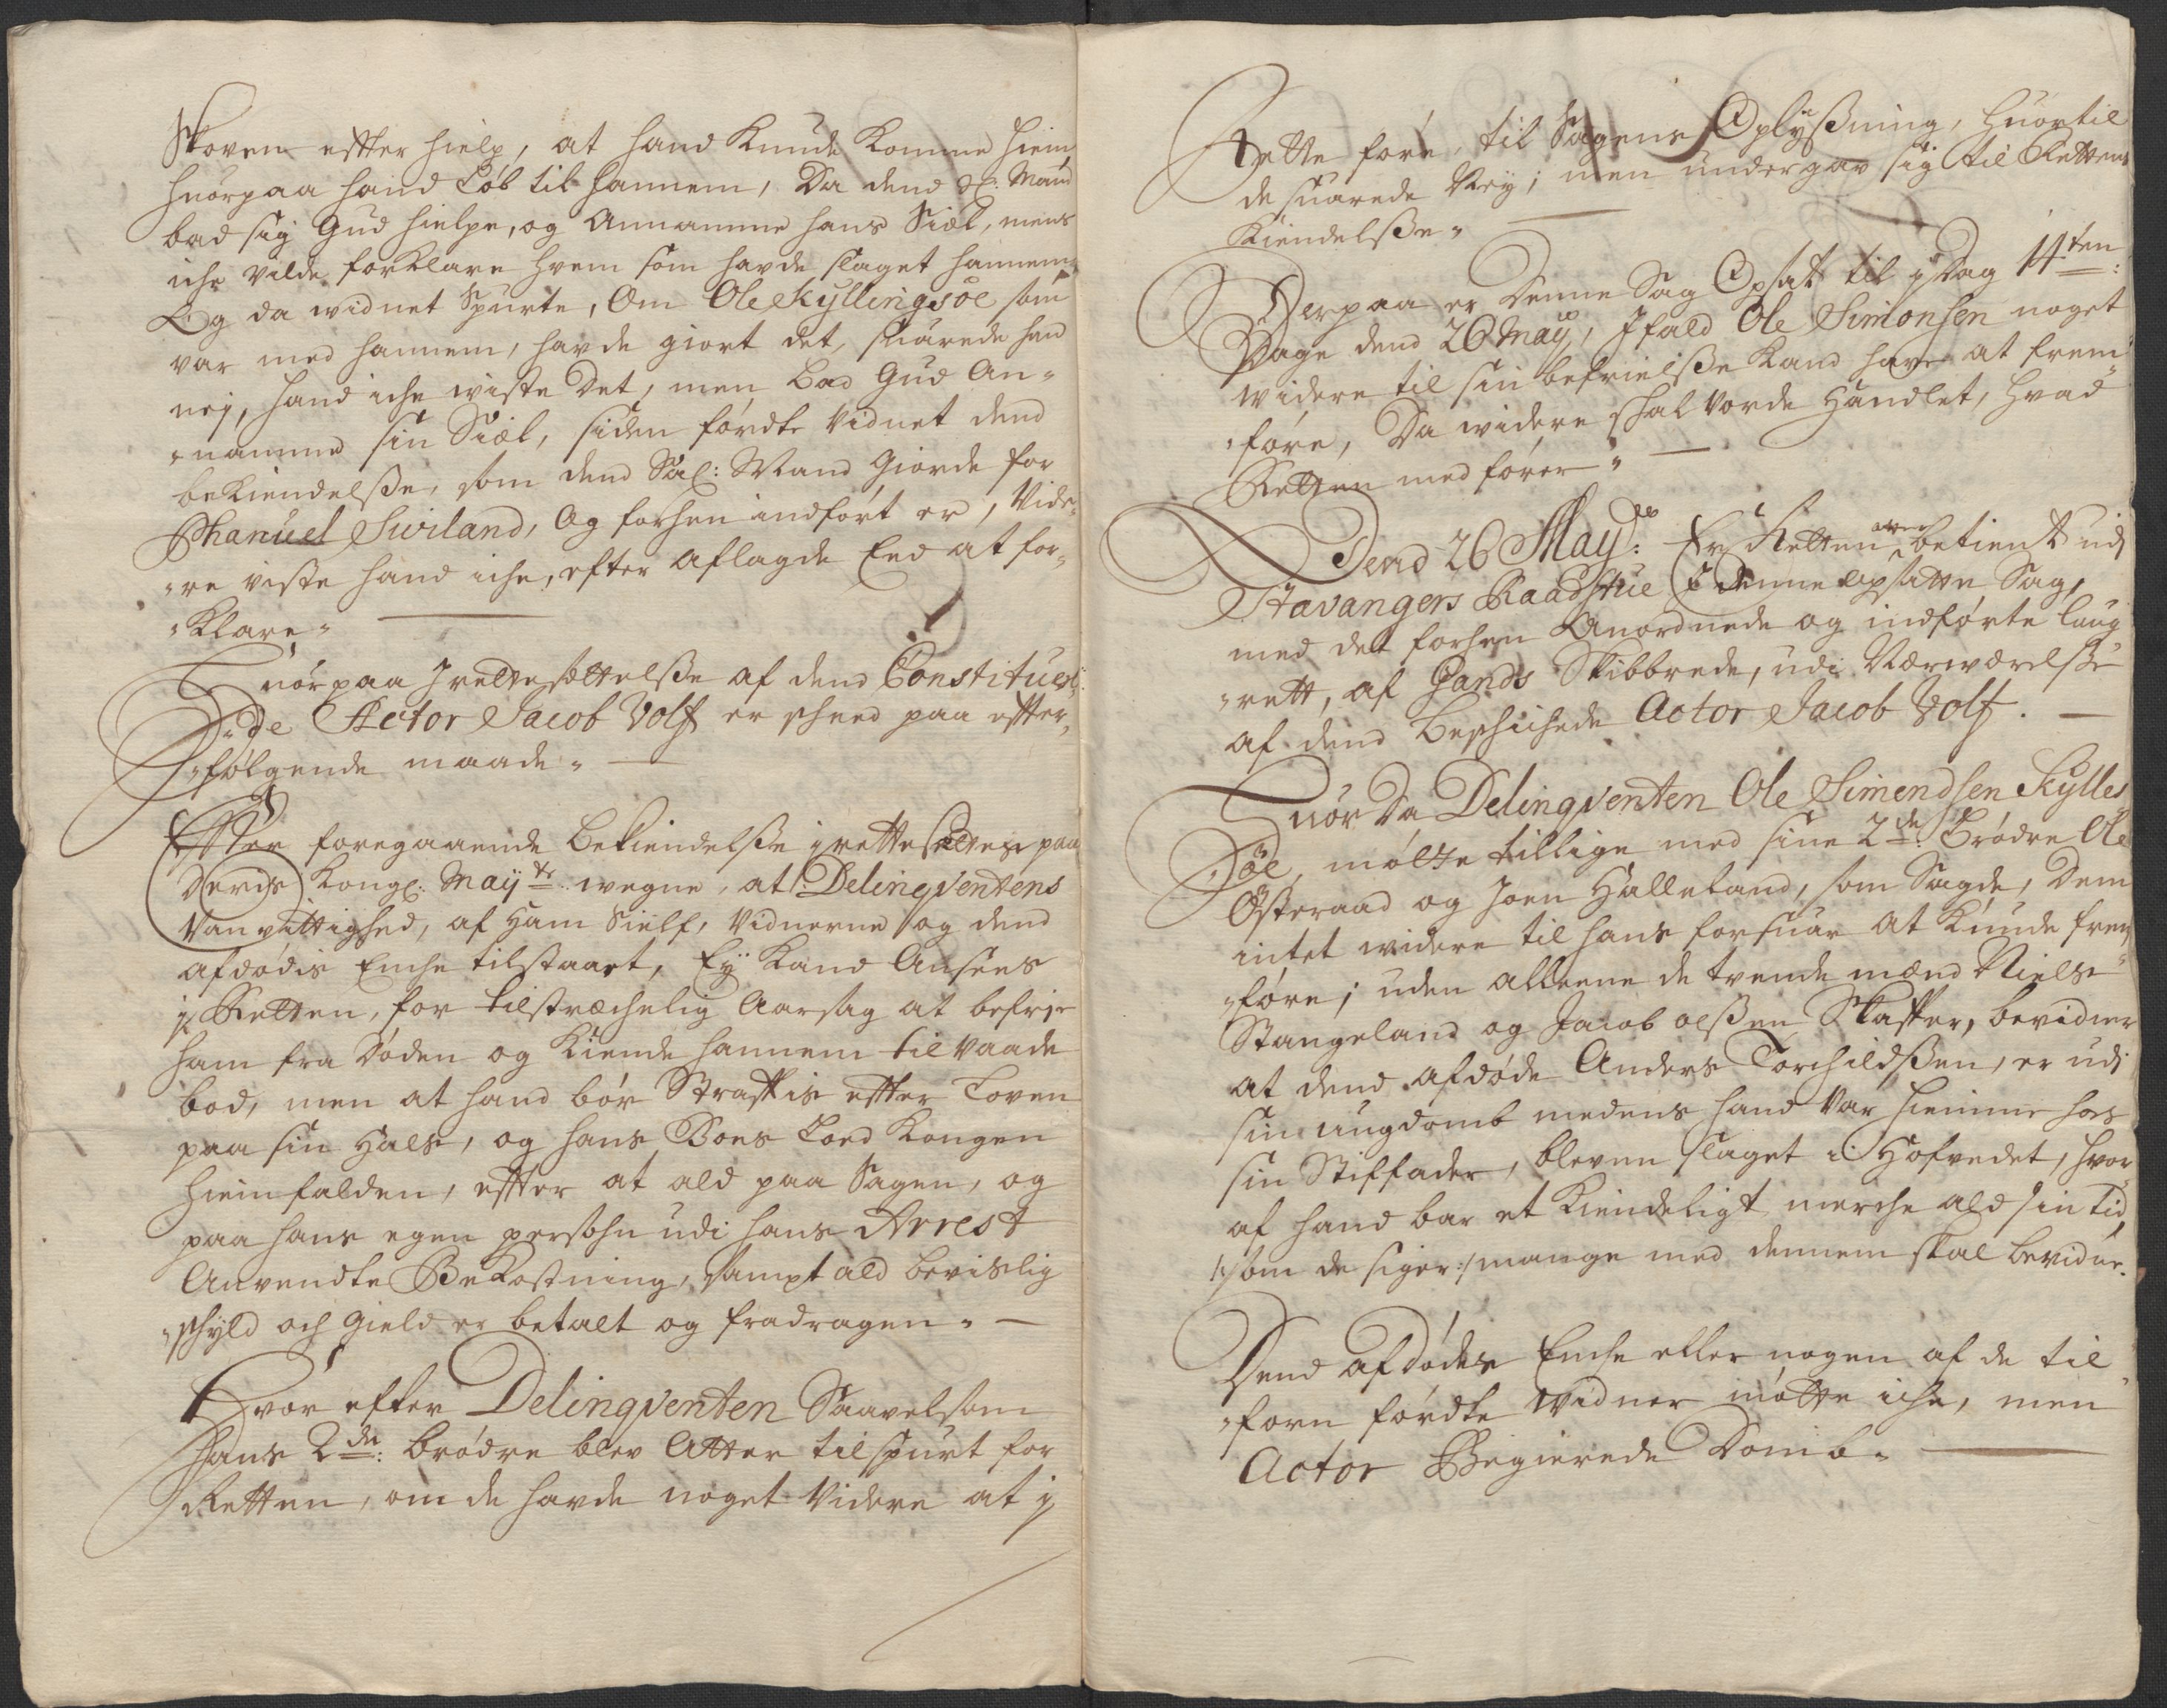 Skoven effter hielp, at hand Kunde Komme hiem,
huorpaa hand Løb til hannem, Da dend Sl: Mand
bad sig Gud hielpe, og Annamme hans Siæl, mens
iche vilde forklare hvem som havde slaget hannem,
Og da widnet Spurte, Om Ole Kyllingsøe som
var med hannem, havde giort det, suarede hand
nej, hand iche wiste Det, men bad Gud An-
namme sin Siæl, siden førdte Vidnet dend
beKiendelsse, som dend Sal: Mand Giorde for
Phanuel Swiland, Og forhen indført er, Vide-
re viste hand iche, efter aflagde Eed at for-
Klare.
Huorpaa Irettesættelsse af dend Constituer-
de Actor Jacob Volf er scheed paa effter-
følgende maade.
Effter foregaaende bekiendelsse irettesættes paa
Deris Kongl: Mayts: wegne, at Delinqventens
Vanvittighed, af Ham Sielf, Vidnerne og dend
afdødis Enche tilstaaet, Ey Kand Ansees
i Retten, for tilstrechelig Aarsag at befrie
ham fra Døden og Kiende hannem til Vaade
bod, men at hand bør Straffis effter Loven
paa sin Hals, og hans Boes Lod Kongen
hiemfalden, effter at ald paa Sagen, og
paa hans egen persohn udi hans Arrest
Anvendte BeKostning, sampt ald bevislig
schyld och Gield er betalt og fradragen.
Hvor efter Delinqventen Saavelsom
hans 2de: brødre blev Atter tilspurt for
Retten, om de havde noget Videre at i
Rette føre, til Sagens Oplyßning, huortil
de suarede Ney; men undergav sig til Rettens
Kiendelsse.
Derpaa er Denne Sag Opsat til i Dag 14ten:
Dage dend 26 May, Ifald Ole Simonsen noget
widere til sin befrielsse Kand have at frem-
føre, Da widere skal vorde Handlet, hvad
Retten medfører.
Dend 26 May: Er Retten betient udi
Stavangers Raadstue i denne opsatte Sag,
med det forhen Anordnede og indførte laug-
rett, af Gands Skibbrede, udi Nærwærelsse
af dend beschichede Actor Jacob Volf.
Huor Da Delinqventen Ole Simendsen Kylles
øe, mølte tillige med sine 2de: brødre Ole
Østeraad og Joen Halleland, som Sagde, Dem
intet widere til hans forsuar at Kunde frem
føre; uden alleene de tvende mænd Niels
Stangeland og Jacob olssen Skaffer, bevidner
at dend afdøde Anders Torchildssen, er udi
sin ungdomb medens hand var hiemme hos
sin Stiffader, bleven slaget i Hofvedet, hvor
af hand bar et Kiendeligt merche ald sin tid,
/: som de siger :/ mange med dennem skal bevidne.
Dend afdødes Enche eller nogen af de til
forn førdte widner møtte iche, men
Actor Begierede Domb.